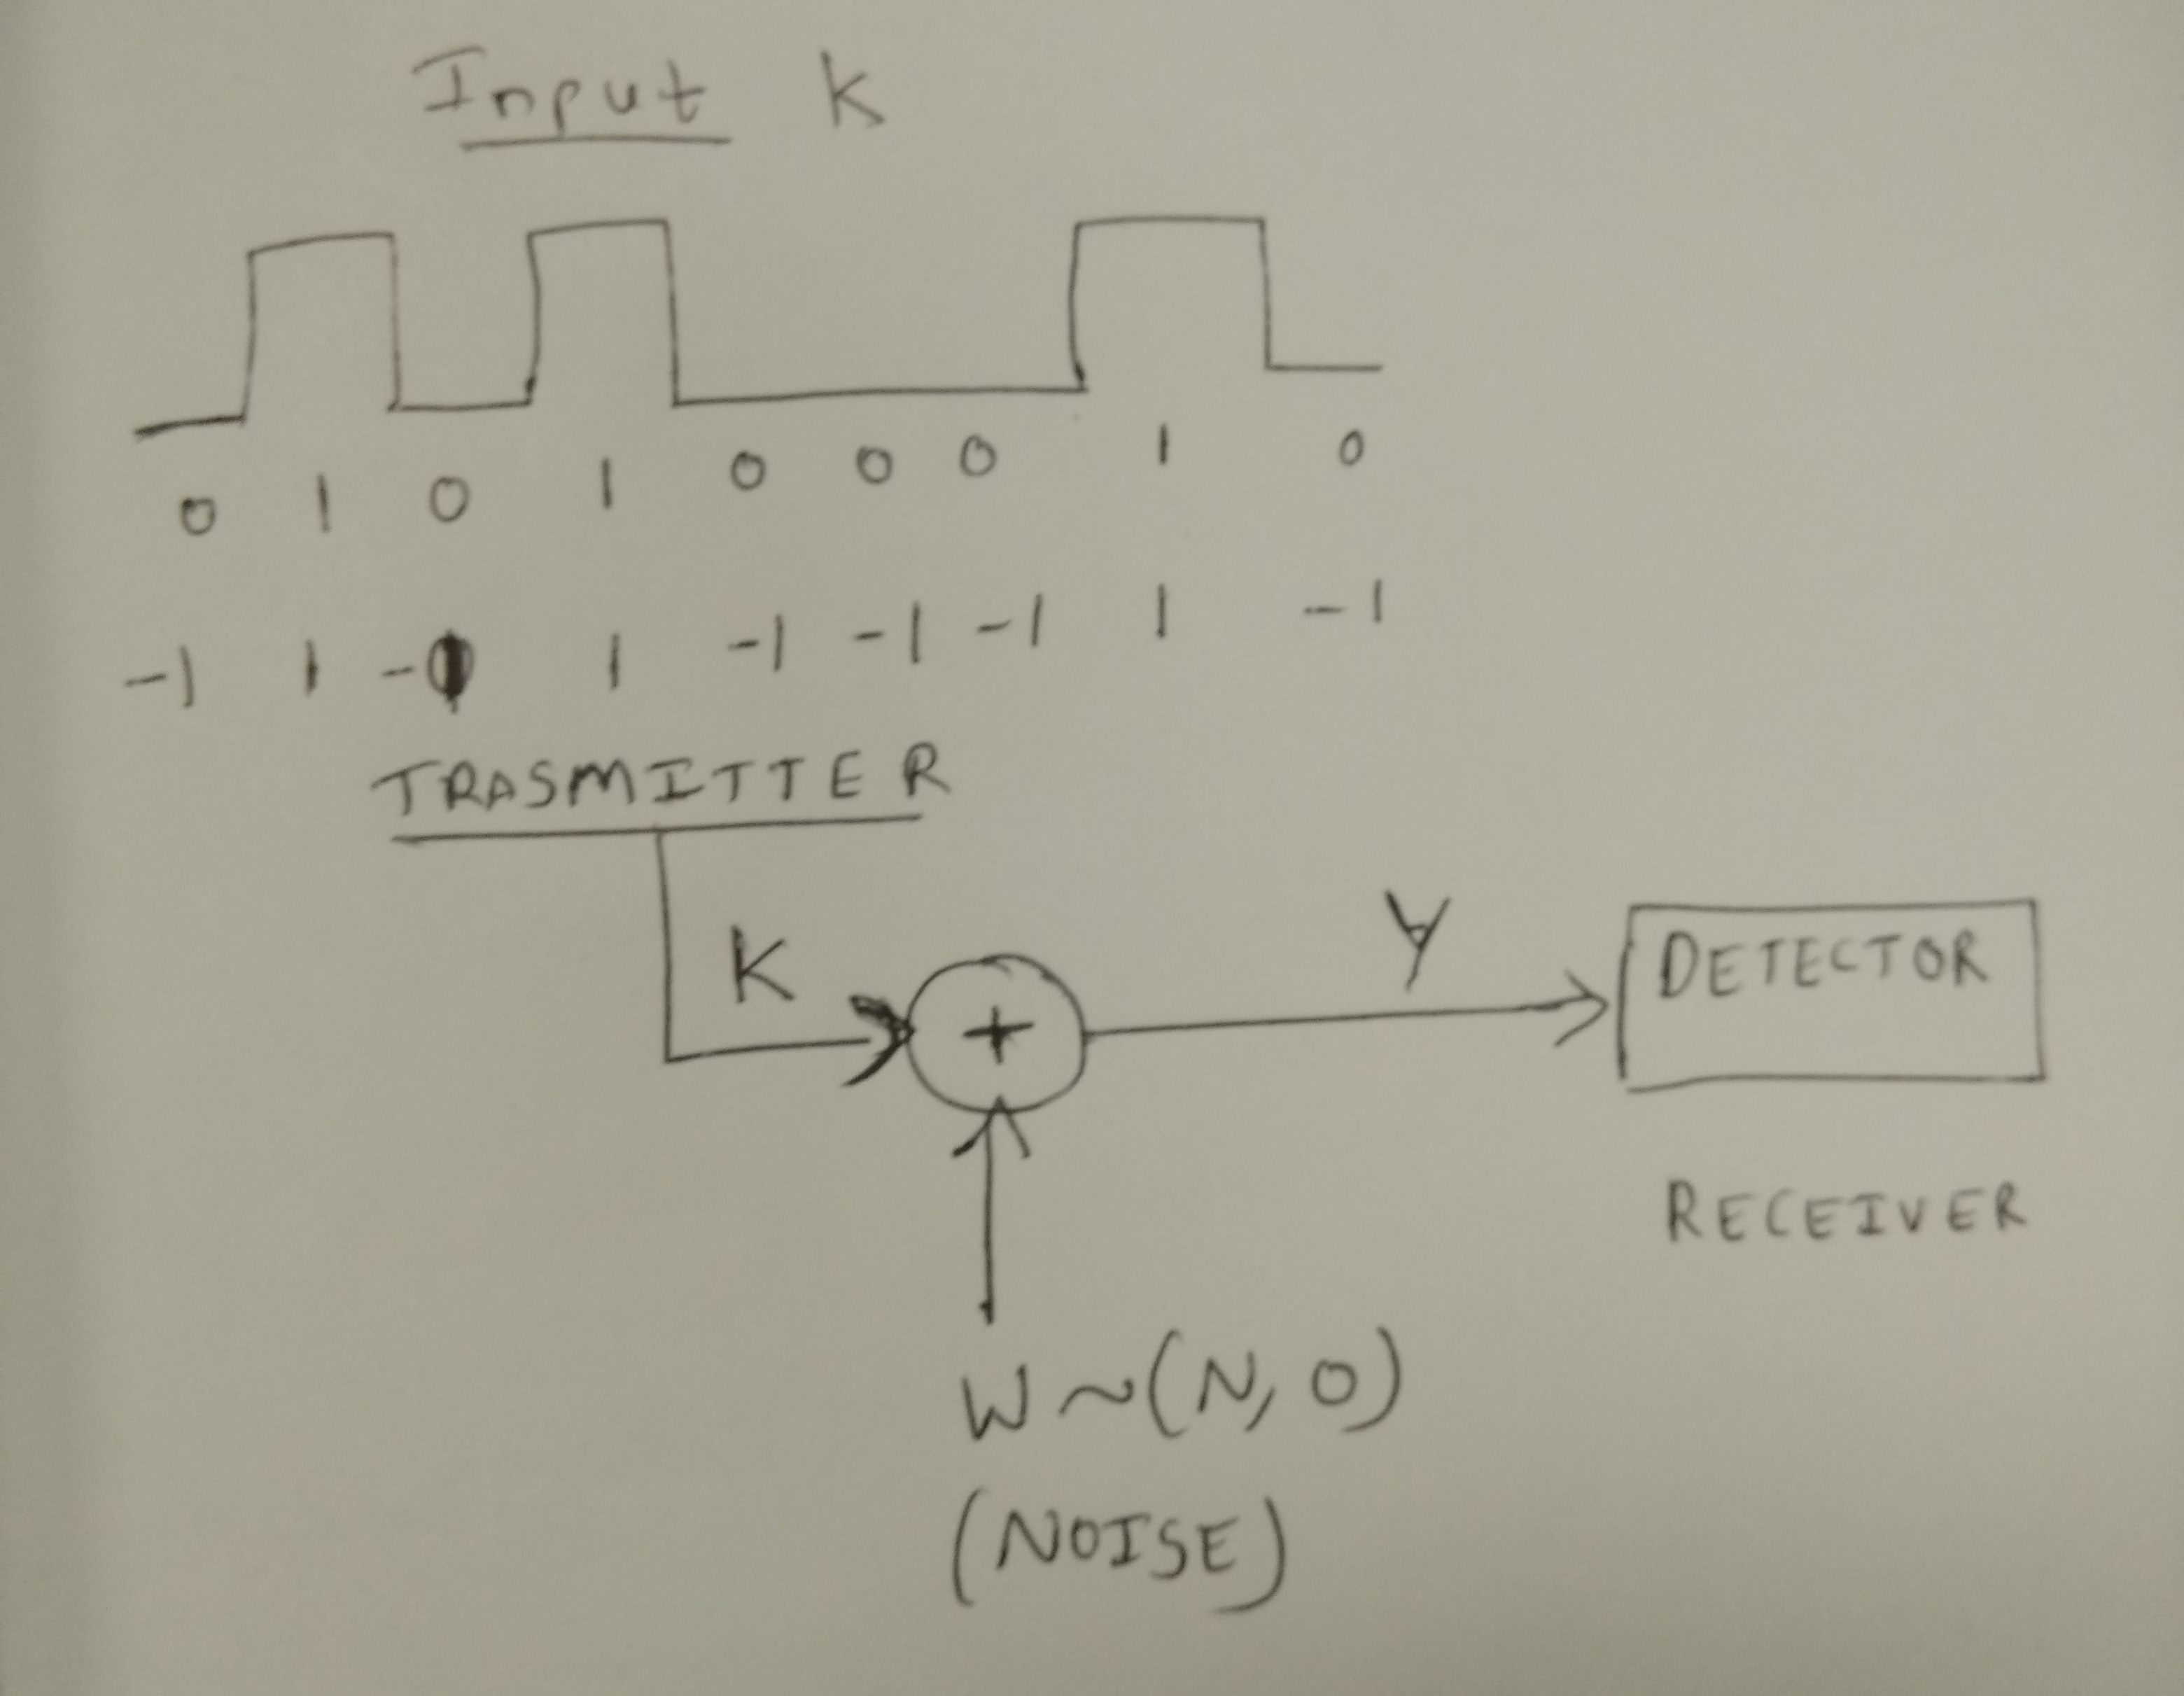 Input K
0 1 0 1 0 0 0 1 0
-1 1 -1 1 -1 -1 -1 1 -1
TRASMITTER
K
+
Y
DETECTOR
RECEIVER
W~(N,0)
(NOISE)